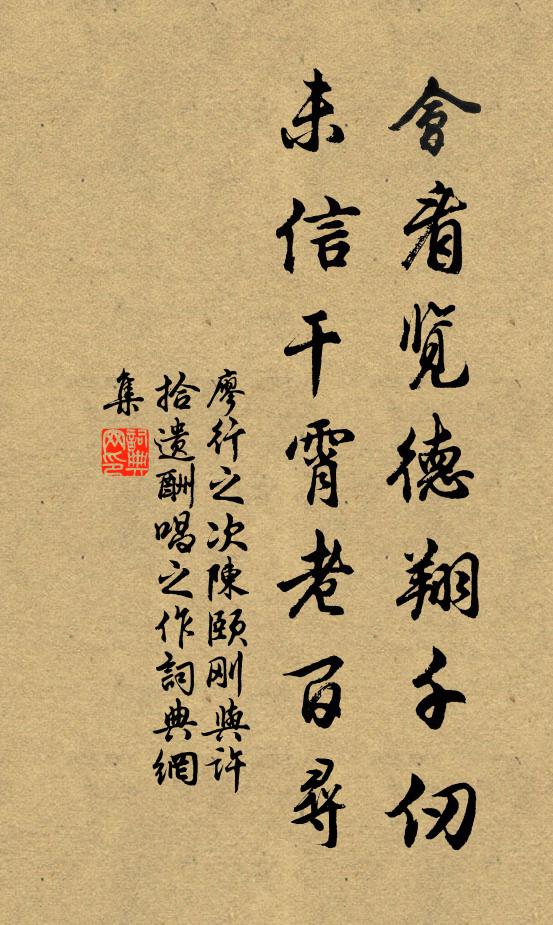 會看览德翔千仞
未信干霄老百尋
廖行之次陳頤剛與許
拾遗酬唱之作詞典網
集
詞典网印